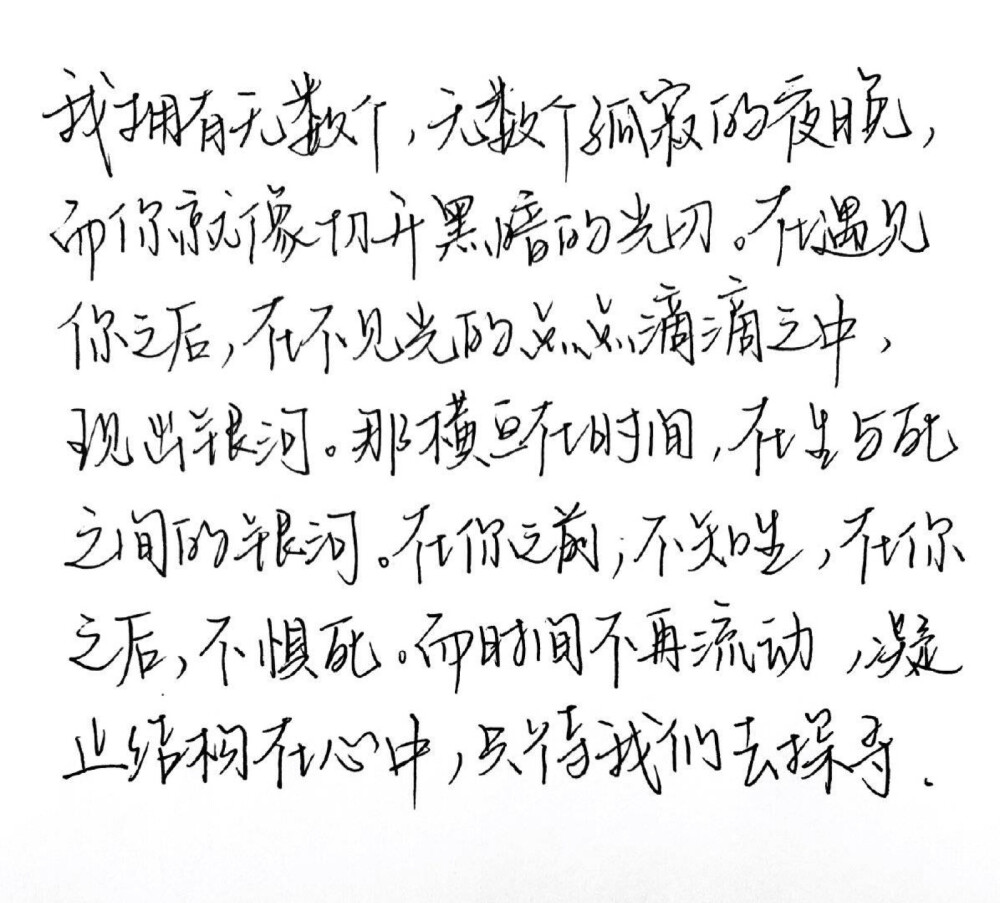 我拥有无数个，无数个孤寂的夜晚，
而你就像切开黑暗的光切。在遇见
你之后，在不见光的点点滴滴之中，
现出银河。那横亘在时间，在生与死
之间的银河。在你之前，不知生，在你
之后，不惧死。而时间不再流动，凝
止结构在心中，只待我们去探寻.